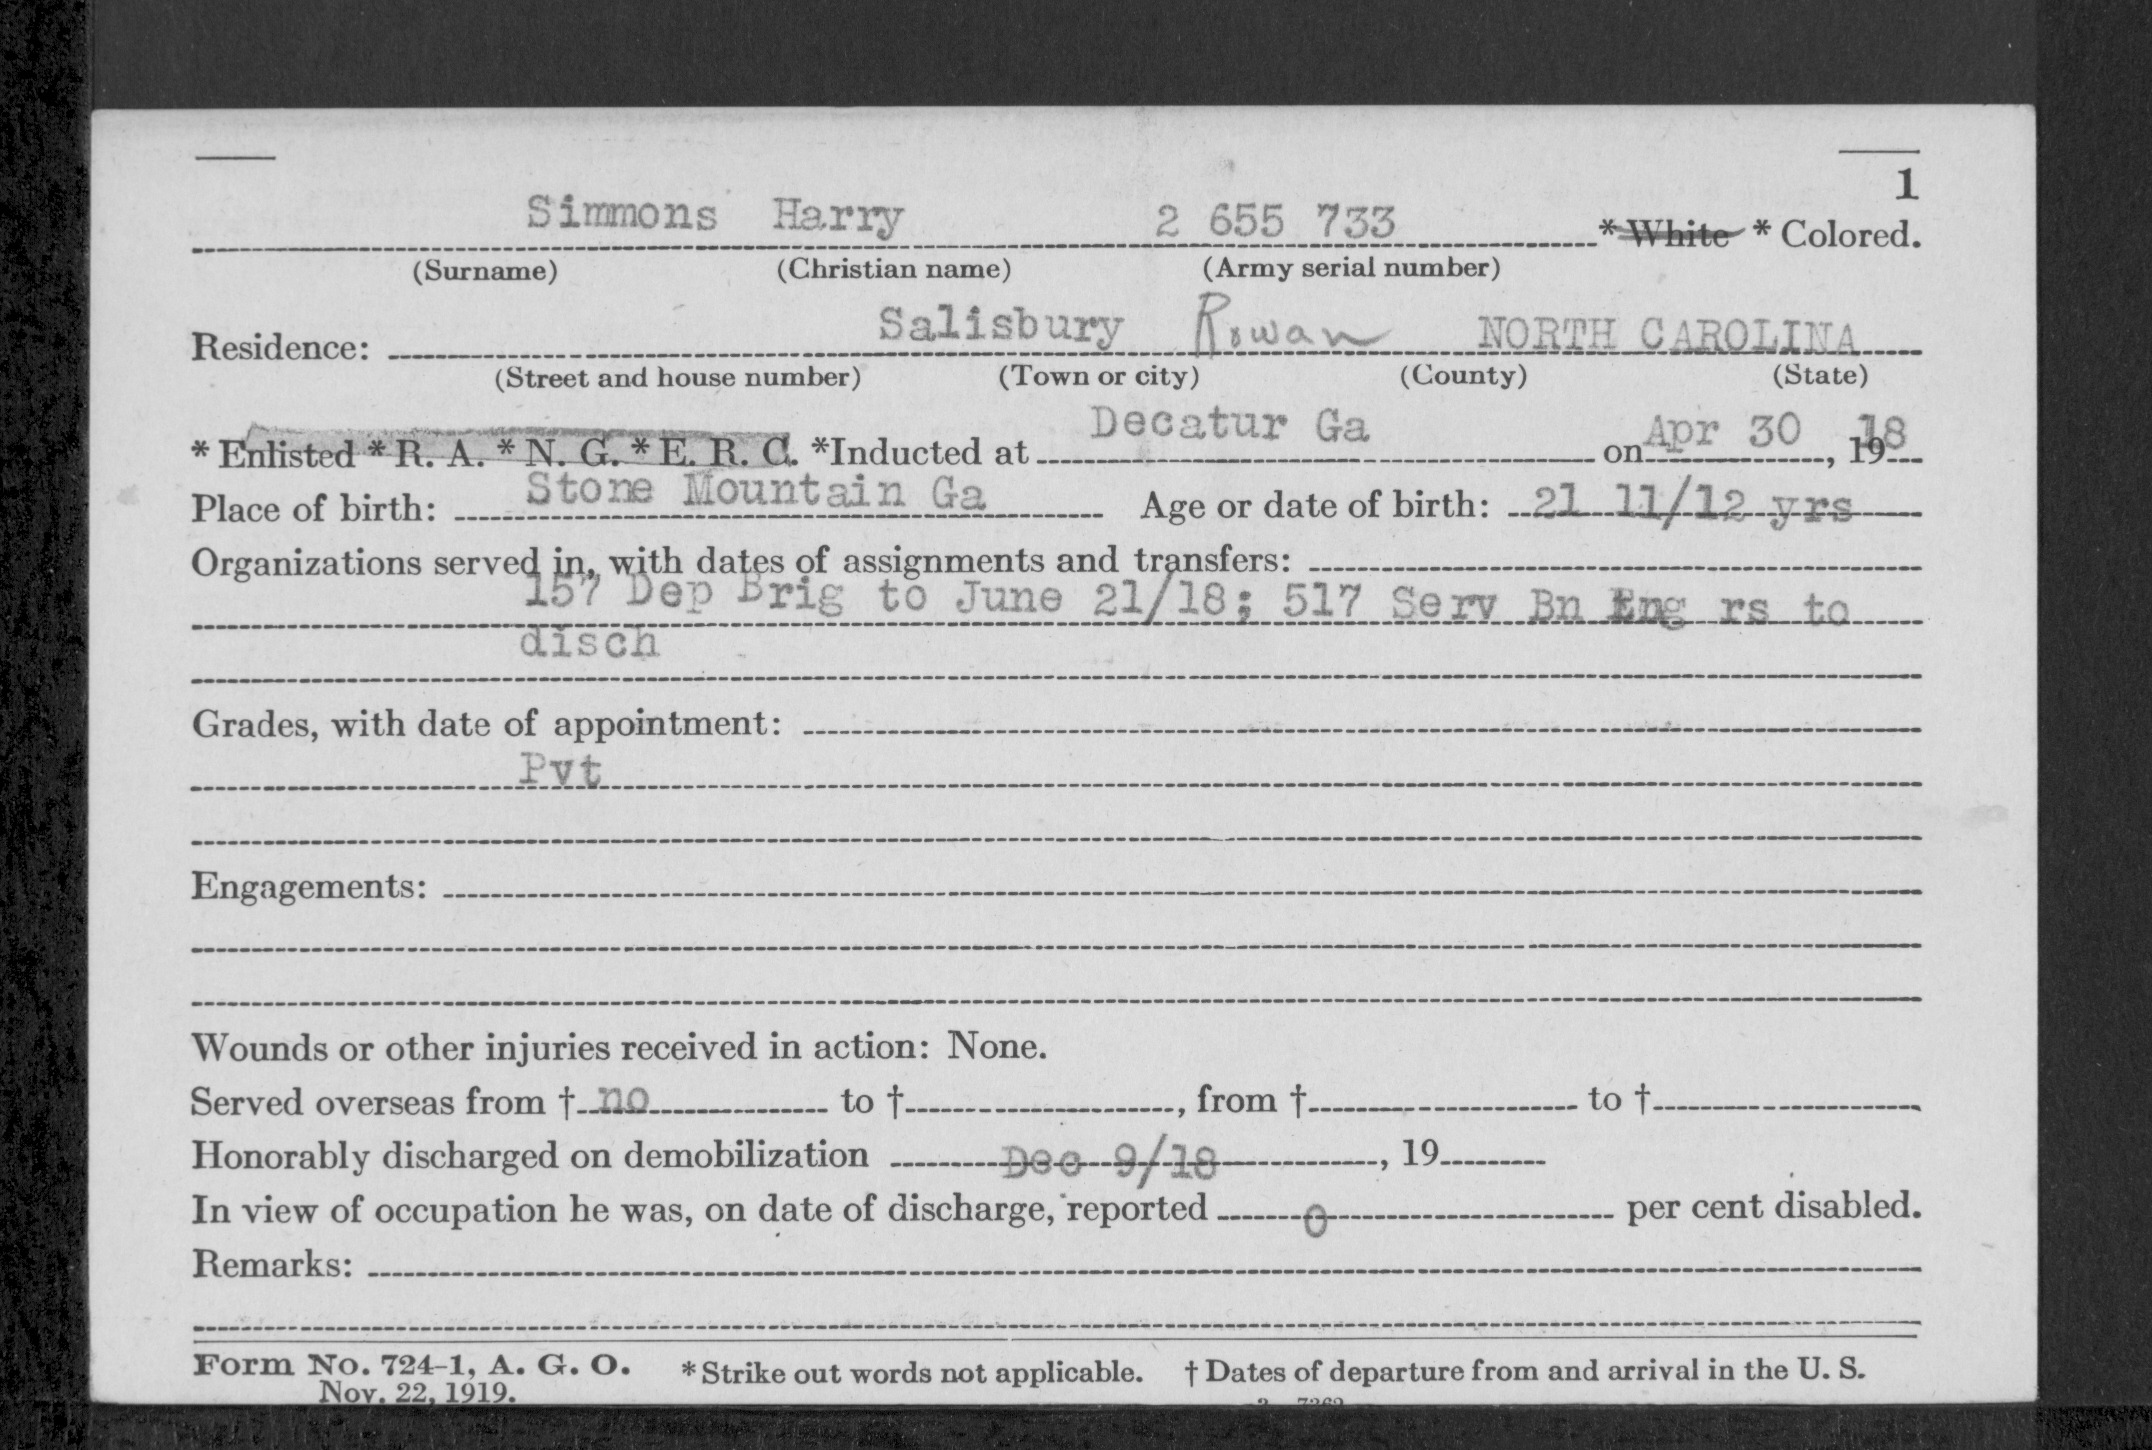 1
Simmons Harry 2 655 733 *White * Colored.
(Surname) (Christian name) (Army serial number)
Residence: Salisbury Rowan NORTH CAROLINA
(Street and house number) (Town or city) (County) (State)
* Enlisted * R. A. * N. G. * E. R. C. *Inducted at Decatur Ga on Apr 30, 1918
Place of birth: Stone Mountain Ga Age or date of birth: 21 11/12 yrs
Organizations served in, with dates of assignments and transfers:
157 Dep Brig to June 21/18; 517 Serv Bn Eng rs to
disch
Grades, with date of appointment:
Pvt
Engagements:
Wounds or other injuries received in action: None.
Served overseas from † no to †, from † to †
Honorably discharged on demobilization Dec 9/18, 19
In view of occupation he was, on date of discharge, reported 0 per cent disabled.
Remarks:
Form No. 724-1, A. G. O. * Strike out words not applicable. † Dates of departure from and arrival in the U. S.
Nov. 22, 1919.